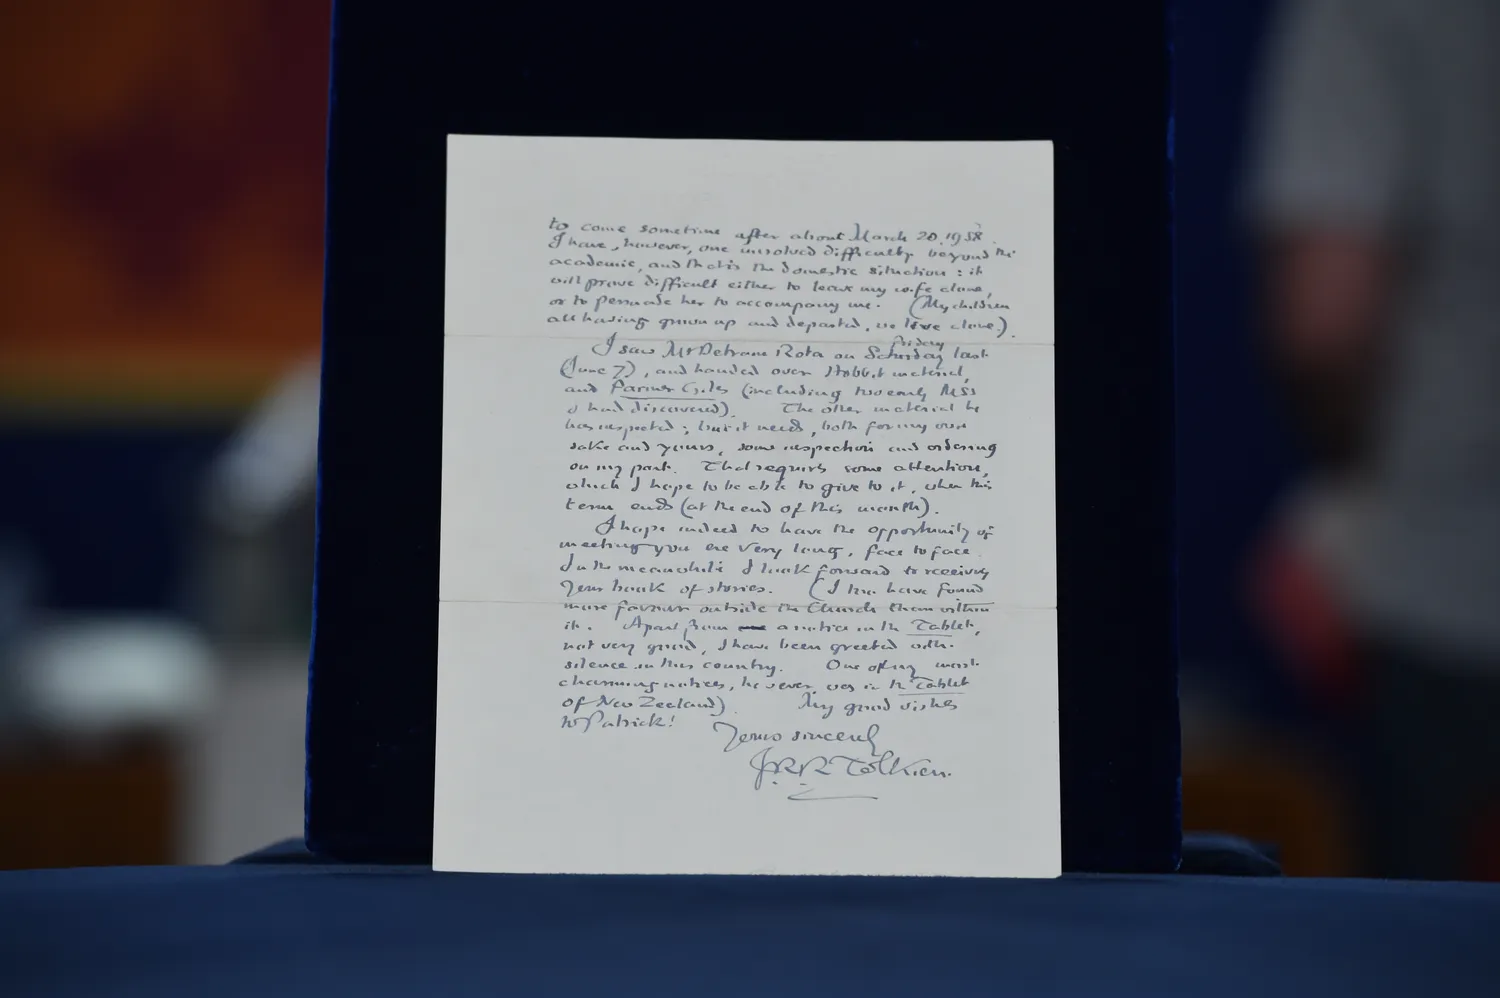 to come sometime after about March 20. 1958.
I have, however, one unsolved difficulty beyond the
academic, and that is the domestic situation : it
will prove difficult either to leave my wife alone,
or to persuade her to accompany me. (My children
all having grown up and departed, we live alone.)
Friday
I saw Mr Bertram Rota on Saturday last
(June 7), and handed over Hobbit material,
and Farmer Giles (including two early MSS
I had discovered). The other material he
has inspected ; but it needs, both for my own
sake and yours, some inspection and ordering
on my part. That requires some attention,
which I hope to be able to give to it, when this
term ends (at the end of this month).
I hope indeed to have the opportunity of
meeting you ere very long, face to face.
In the meanwhile I look forward to receiving
your book of stories. (I too have found
more favour outside the Church than within
it. Apart from a notice in the Tablet,
not very good, I have been greeted with
silence in this country. One of my most
charming notices, however, was in the Tablet
of New Zealand). My good wishes
to Patrick!
Yours sincerely
J.R.R. Tolkien.